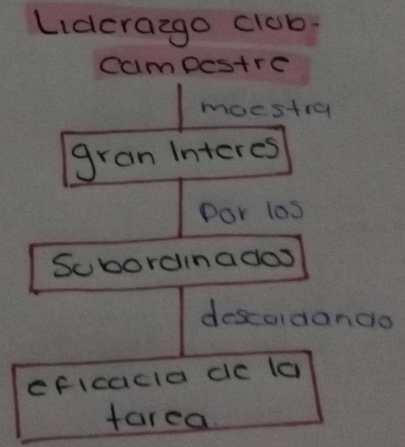 Liderazgo club-
campestre
muestra
gran Interes
por los
Subordinados
descuidando
eficacia de la
tarea.